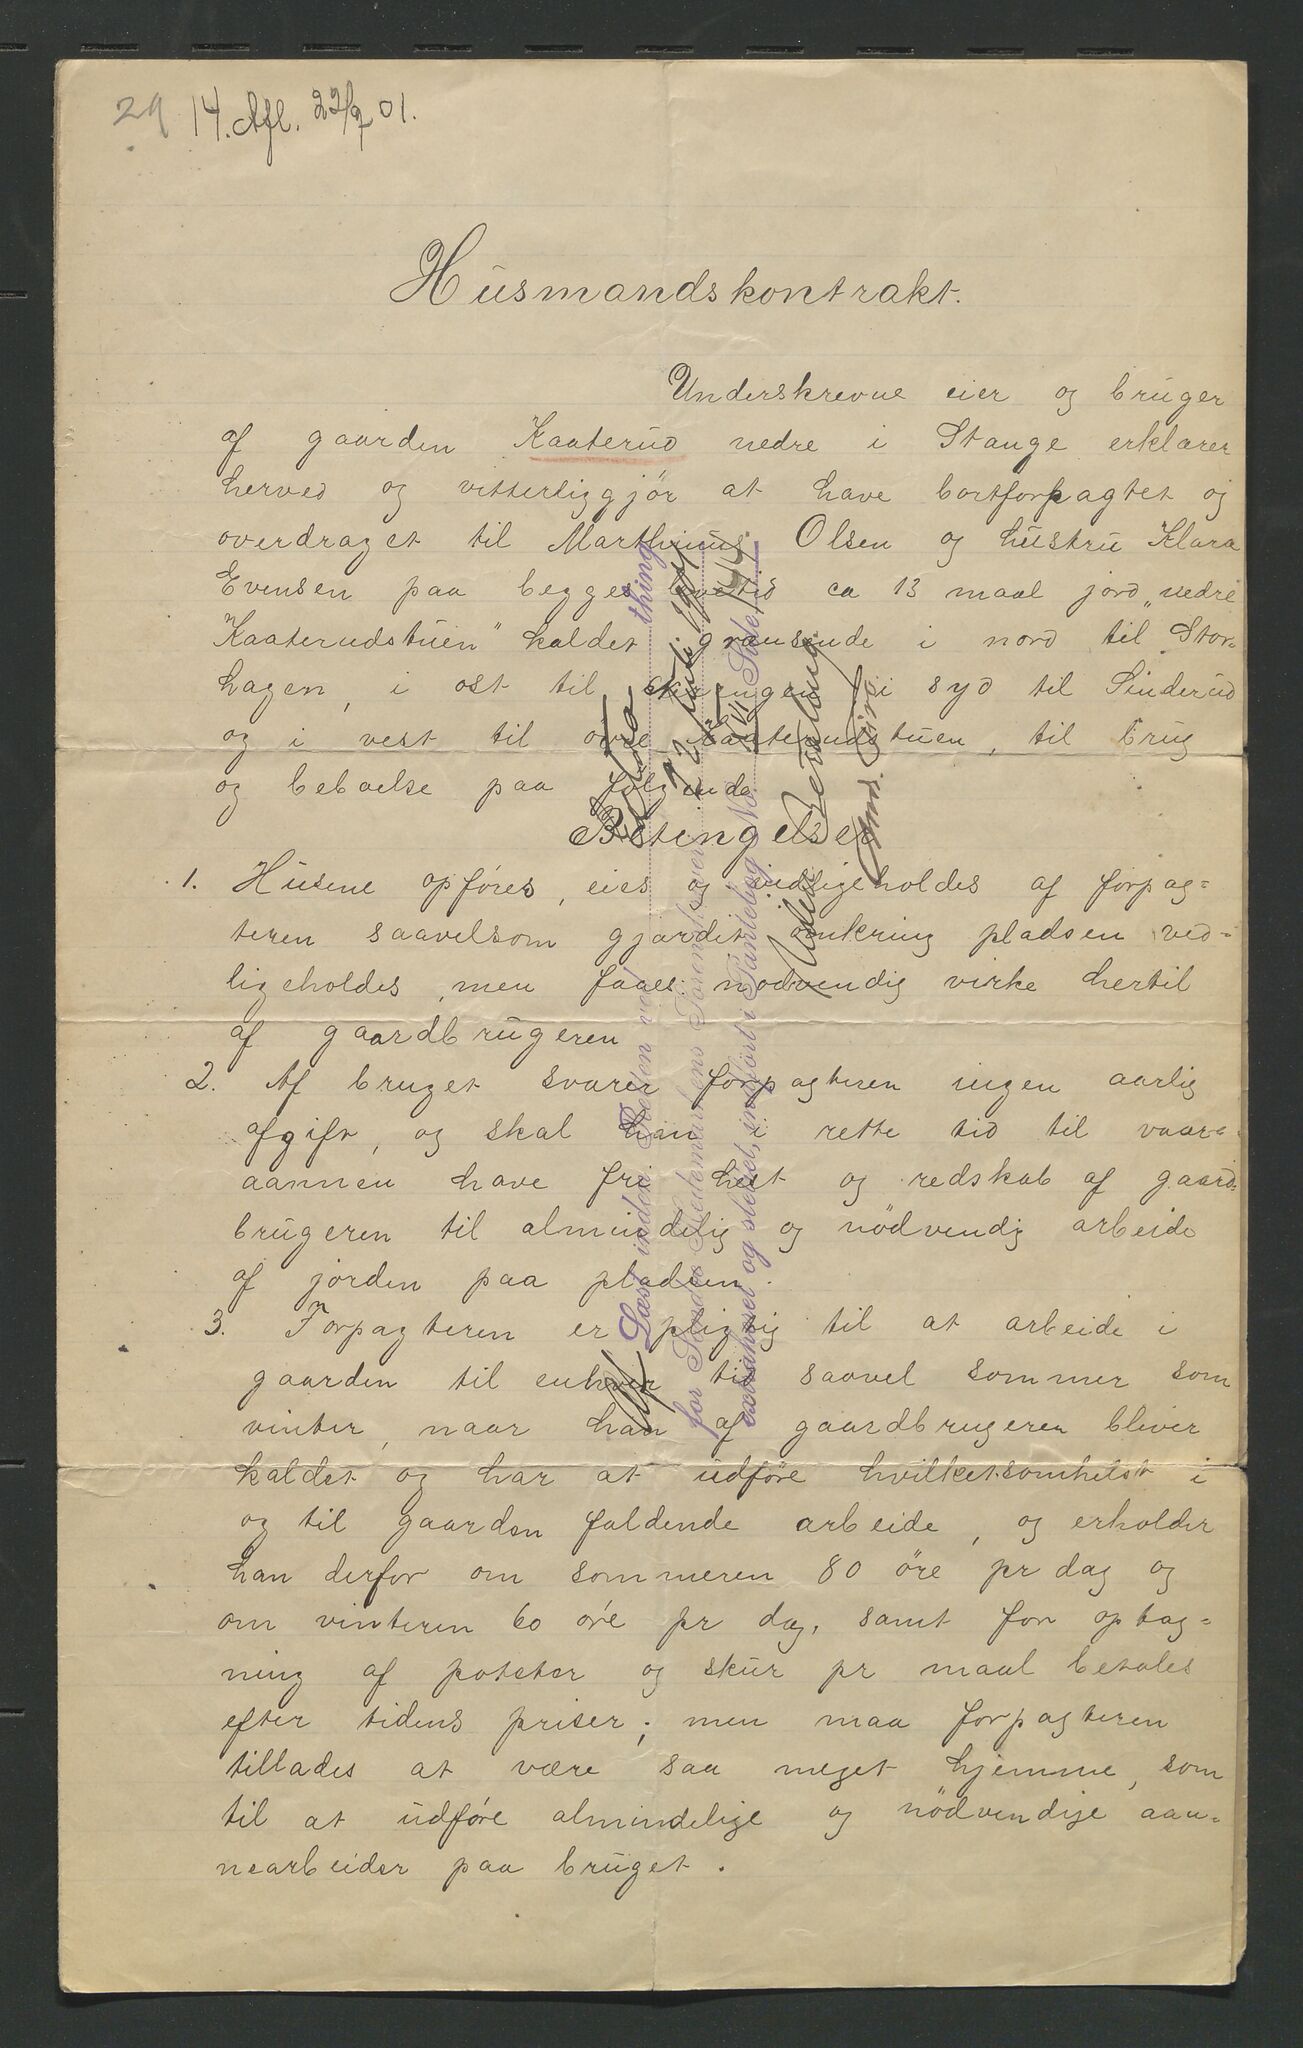 29 14. Afl. 22/7 01.
Husmandskontrakt.
Underskrevne eier og bruger
af gaarden Kaaterud nedre i Stange erklærer
herved og vitterliggjør at have bortforpagtet og
overdraget til Marthinus Olsen og hustru Klara
Evensen paa begges levetid ca 13 maal jord „nedre
Kaaterudstuen" kaldet grænsende i nord til Stor-
hagen, i øst til i syd til Sinderud
og i vest til øvre Kaaterudstuen, til brug
og beboelse paa følgende
Betingelser
1. Husene opføres, eies og vedligeholdes af forpag=
teren saavelsom gjærdet omkring pladsen ved-
ligeholdes, men faaes nødvendig virke hertil
af gaardbrugeren
2. Af bruget svarer forpagteren ingen aarlig
afgift, og skal han i rette tid til vaar-
aannen have fri hest og redskab af gaard-
brugeren til almindelig og nødvendig arbeide
af jorden paa pladsen.
3. Forpagteren er pligtig til at arbeide i
gaarden til enhver tid saavel sommer som
vinter, naar han af gaardbrugeren bliver
kaldet og har at udføre hvilketsomhelst i
og til gaarden faldende arbeide, og erholder
han derfor om sommeren 80 øre pr dag og
om vinteren 60 øre pr dag, samt for optag=
ning af poteter og skur pr maal betales
efter tidens priser; men maa forpagteren
tillades at være saa meget hjemme, som
til at udføre almindelige og nødvendige aan-
nearbeider paa bruget.
Læst inden Retten ved thing
for Søndre Hedemarkens Sorenskriveri 12 Juli 1901
extraheret og slettet, indført i Pantebog No. Side